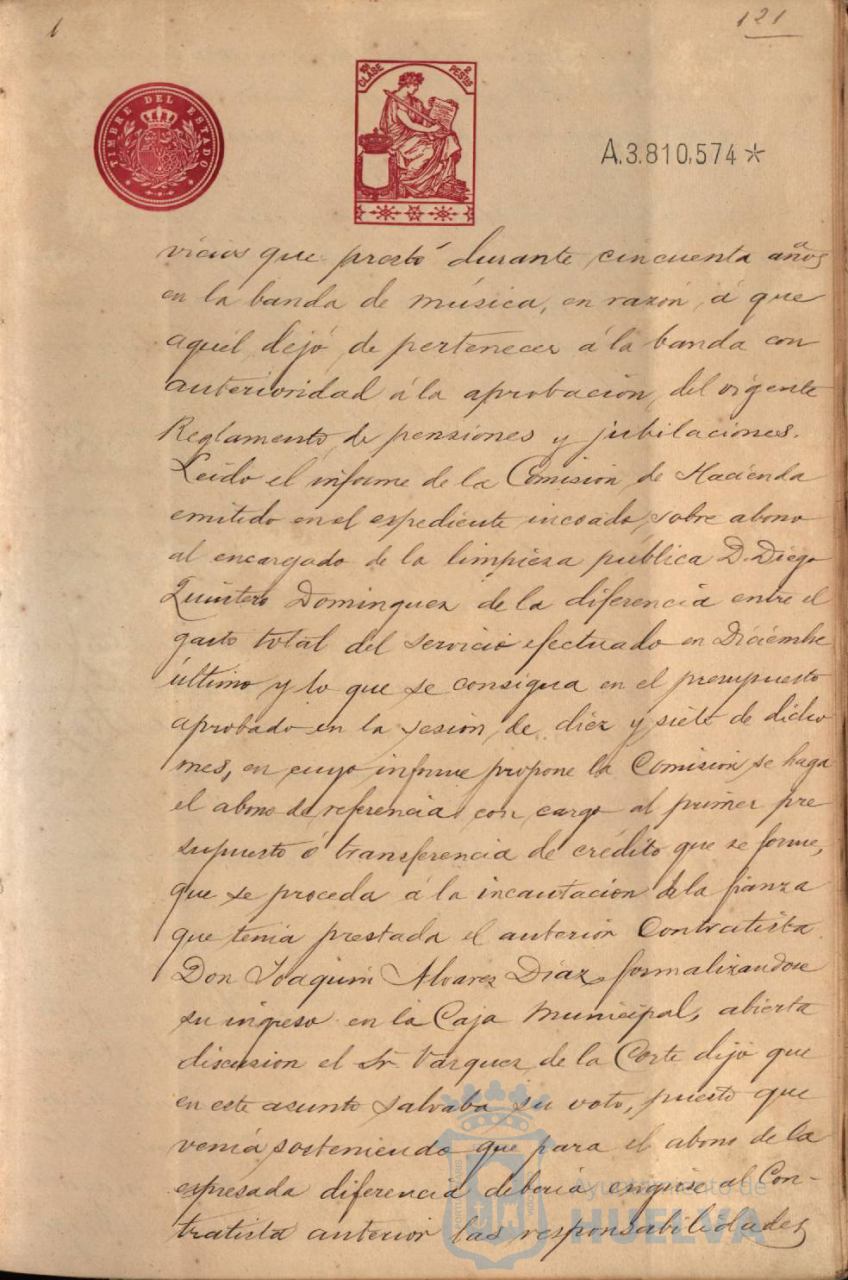 1
121
TIMBRE DEL ESTADO
10ª CLASE 2 PESTAS
A.3.810,574*
vicios que prestó durante cincuenta años
en la banda de música, en razón á que
aquél dejó de pertenecer á la banda con
anterioridad á la aprobación del vigente
Reglamento de pensiones y jubilaciones.
Leido el informe de la Comisión de Hacienda
emitido en el espediente incoado sobre abono
al encargado de la limpieza pública D. Diego
Quintero Dominguez de la diferencia entre el
gasto total del servicio efectuado en Diciembre
último y lo que se consigna en el presupuesto
aprobado en la sesión de diez y siete de dicho
mes, en cuyo informe propone la Comisión se haga
el abono de referencia con cargo al primer pre
supuesto ó transferencia de crédito que se forme,
que se proceda á la incautación de la fianza
que tenia prestada el anterior Contratista
Don Joaquin Alvarez Diaz formalizandose
su ingreso en la Caja Municipal, abierta
discusion el Sr. Vazquez de la Corte dijo que
en este asunto salvaba su voto, puesto que
venia sosteniendo que para el abono de la
espresada diferencia deberia exigirse al Con-
tratista anterior las responsabilidades
Ayuntamiento de
HUELVA